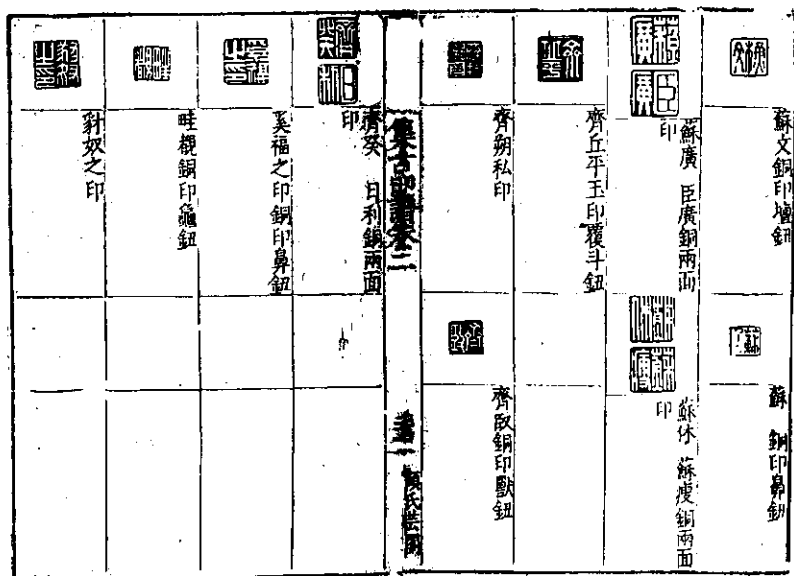 蘇文銅印壇鈕
蘇　銅印鼻鈕
蘇廣　臣廣銅兩面
印
蘇休　蘇瘦銅兩面
印
齊丘平玉印覆斗鈕
齊朔私印
齊臤銅印獸鈕
集古印譜卷二
顧氏芸閣
齊癸　日利銅兩面
印
奚福之印銅印鼻鈕
畦觀銅印龜鈕
豺奴之印